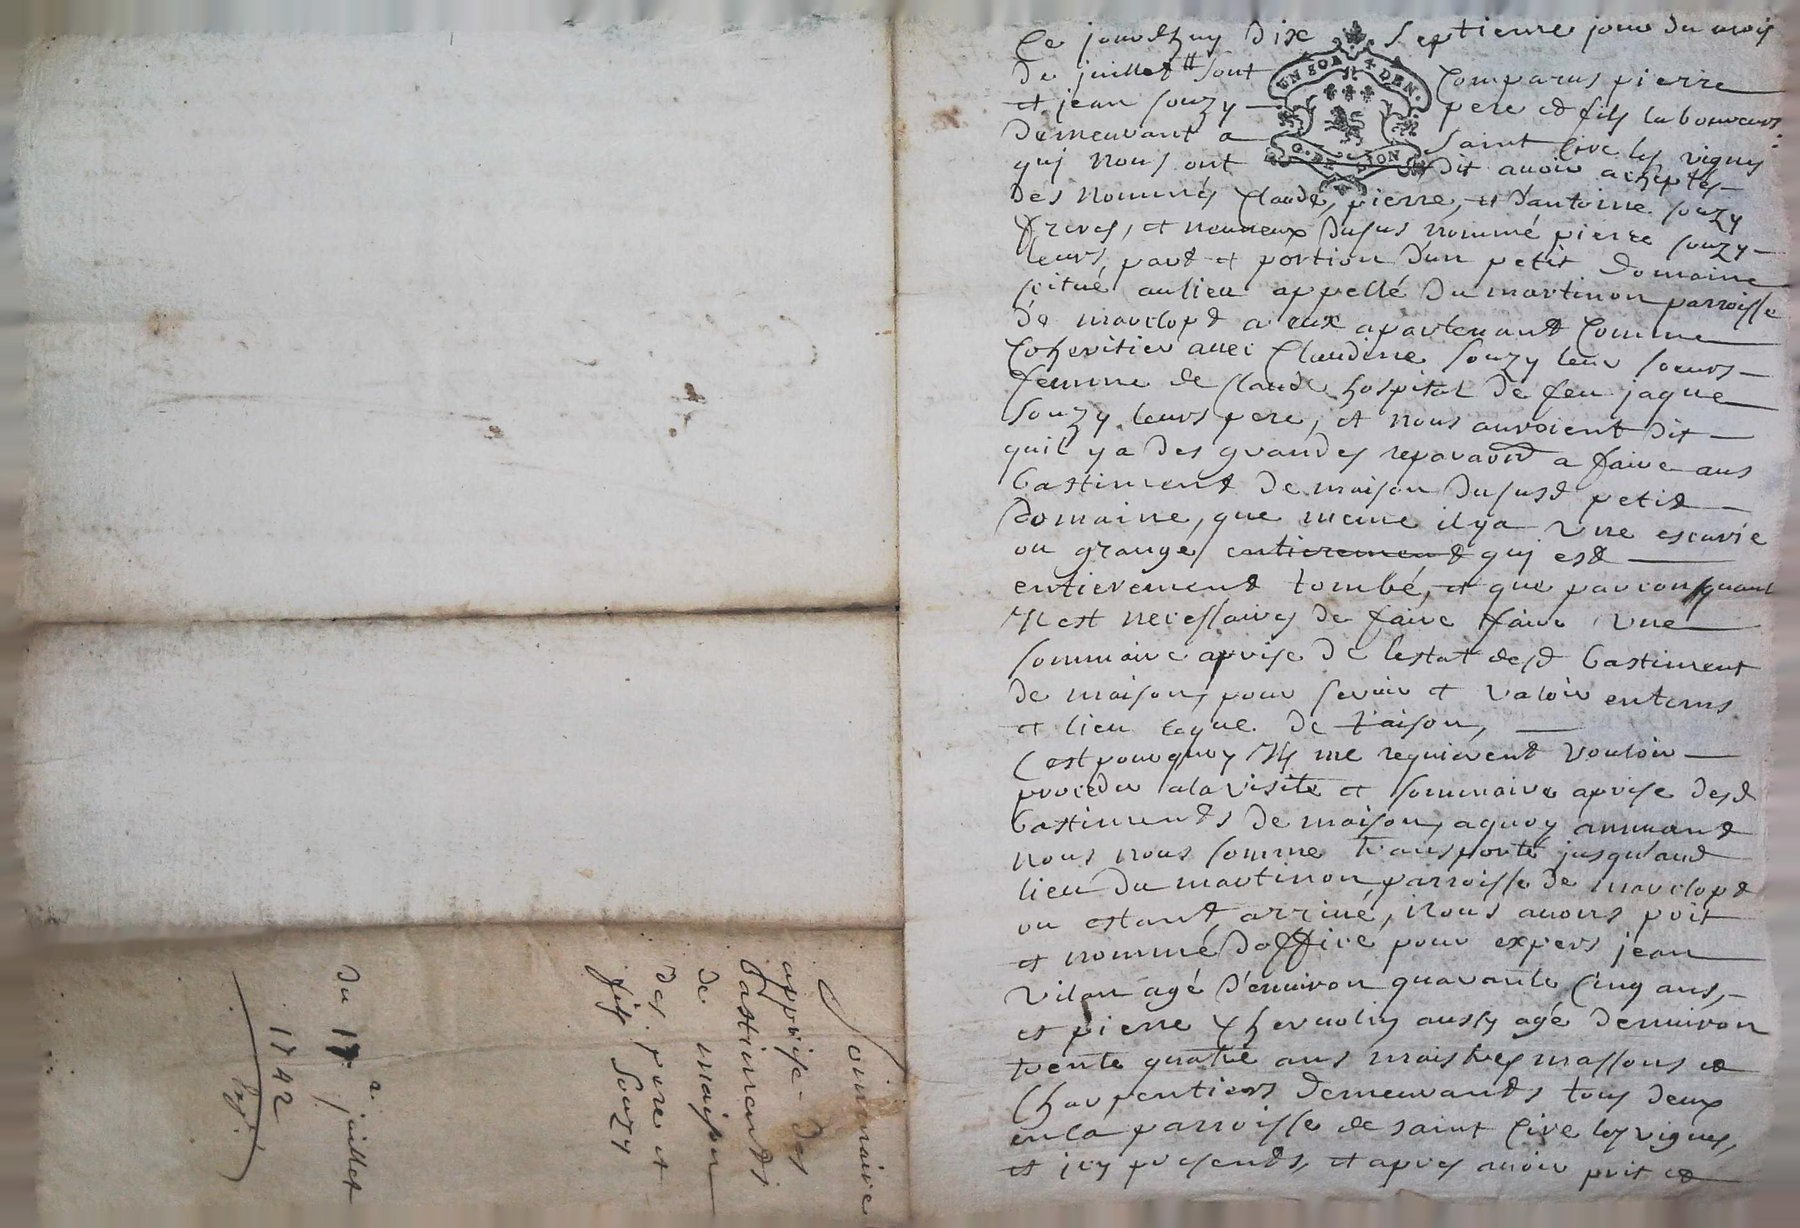 Ce jourdhuy dix septieme jour du mois
de juillet sont Comparus pierre
et jean souzy pere et fils laboureurs
demeurant a saint Cire les vignes
qui nous ont dit avoir acheptés
des nommés Claude, pierre, et d'antoine souzy
freres, et neuveux dusus nommé pierre souzy
leurs part et portion d'un petit domaine
scitué aulieu appellé du martinon parroisse
de marclopt a eux apartenant Comme
Coheritier avec Claudine souzy leur soeurs
femme de Claude hospital de feu jaque
souzy leurs pere, et nous auroient dit
quil ya des grandes reparaon a faire aus
bastiment de maison dususd petit
domaine, que meme ilya une escurie
ou grange, entierement qui est
entierement tombé, et que parconsquant
Il est necessaires de faire faire une
sommaire aprise de lestat desd bastiment
de maison, pour servir et valoir entems
et lieu eque de raison,
Cest pourquoy Ils me requierent vouloir
proceder ala visite et sommaire aprise desd
bastiments de maison, aquoy annuant
nous nous somme transporté jusqu'aud
lieu du martinon parroisse de marclopt
ou estant arrivé, nous avons prit
et nommé d'office pour expers jean
vilan agé d'environ quarante Cinq ans,
et pierre aussy agé denviron
trente quatre ans maistres massons et
Charpentiers demeurants tous deux
enla parroisse de saint Cire les vignes,
et icy presents, et apres avoir prit et
UN SOL 4 DEN.
G. DE LION
Sommaire
apprise des
bastiments
de maison
des pere et
fils Souzy
du 17e juillet
1742